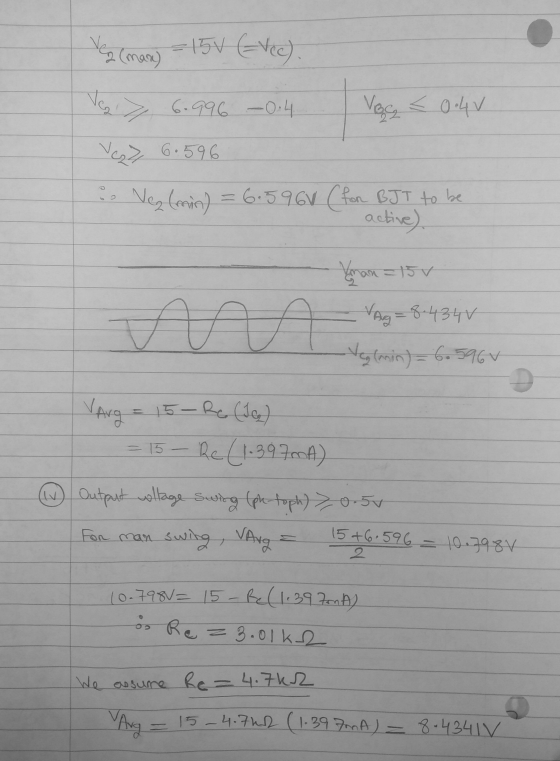 V_C2(max) = 15V (=Vcc).
V_C2 ⩾ 6.996 - 0.4 | V_B2C2 ≤ 0.4V
V_C2 ⩾ 6.596
∴ V_C2(min) = 6.596V (for BJT to be
active).
V_C2max = 15V
V_Avg = 8.434V
V_C2(min) = 6.596V
V_Avg = 15 - Rc (I_C2)
= 15 - Rc (1.397mA)
(iv) Output voltage swing (pk-topk) ⩾ 0.5V
For max swing, V_Avg = 15+6.596 / 2 = 10.798V
10.798V = 15 - Rc(1.397mA)
∴ Rc = 3.01kΩ
We assume Rc = 4.7kΩ
V_Avg = 15 - 4.7kΩ (1.397mA) = 8.4341V